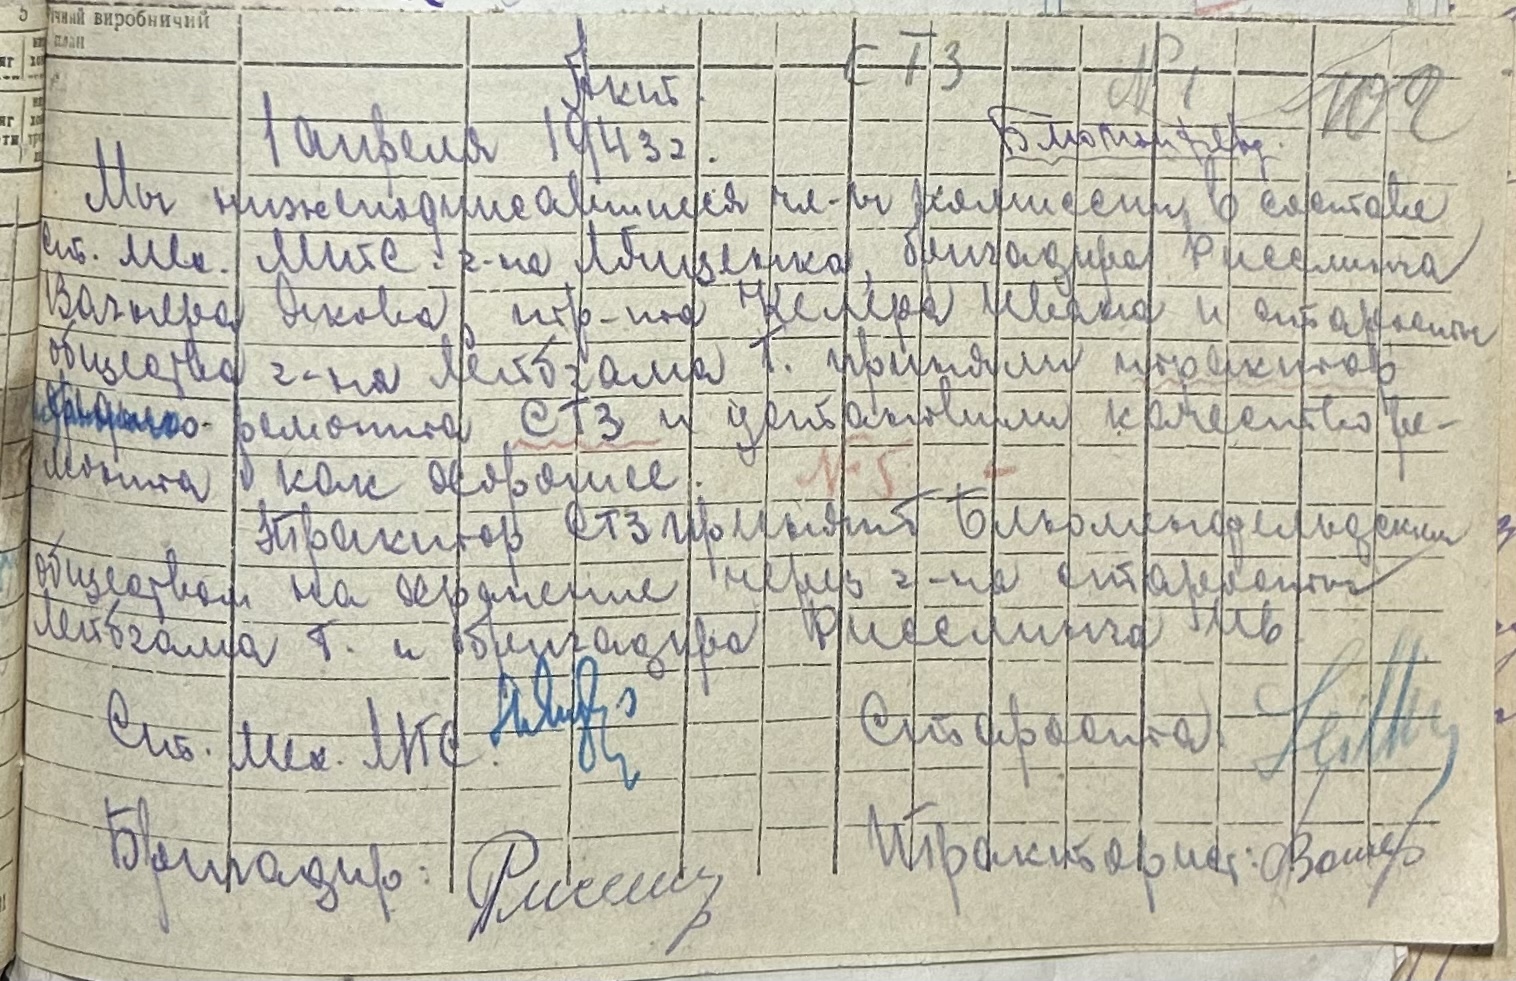 чний виробничий
план
СТЗ № 1 102
Акт.
1 апреля 1943 г. Блюменфельд.
Мы нижеподписавшиеся чл-ы комиссии в составе
ст. мех. МТС г-на Абищенка, бригадира Рисслинга
Вагнера Якова, тр-та Келера Ивана и старосты
общества г-на Лейтбгама Т. приняли трактор
ремонта СТЗ и установили качество ре-
монта как хорошее. № 5 -
Трактор СТЗ принят Блюменфельдским
обществом на хранение через г-на старосты
Лейтбгама Т. и бригадира Рисслинга Ив
Ст. мех. МТС. Староста
Бригадир: Тракторист: